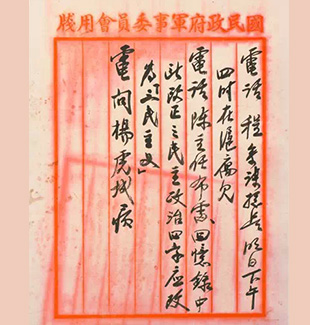 國民政府軍事委員會用牋
電話 程參謀總長 明日下午
四時在滬寓見
電話 陳主任布雷 回憶錄中
改正三民主政治四字應改
為「三民主义」
電 向楊虎城病